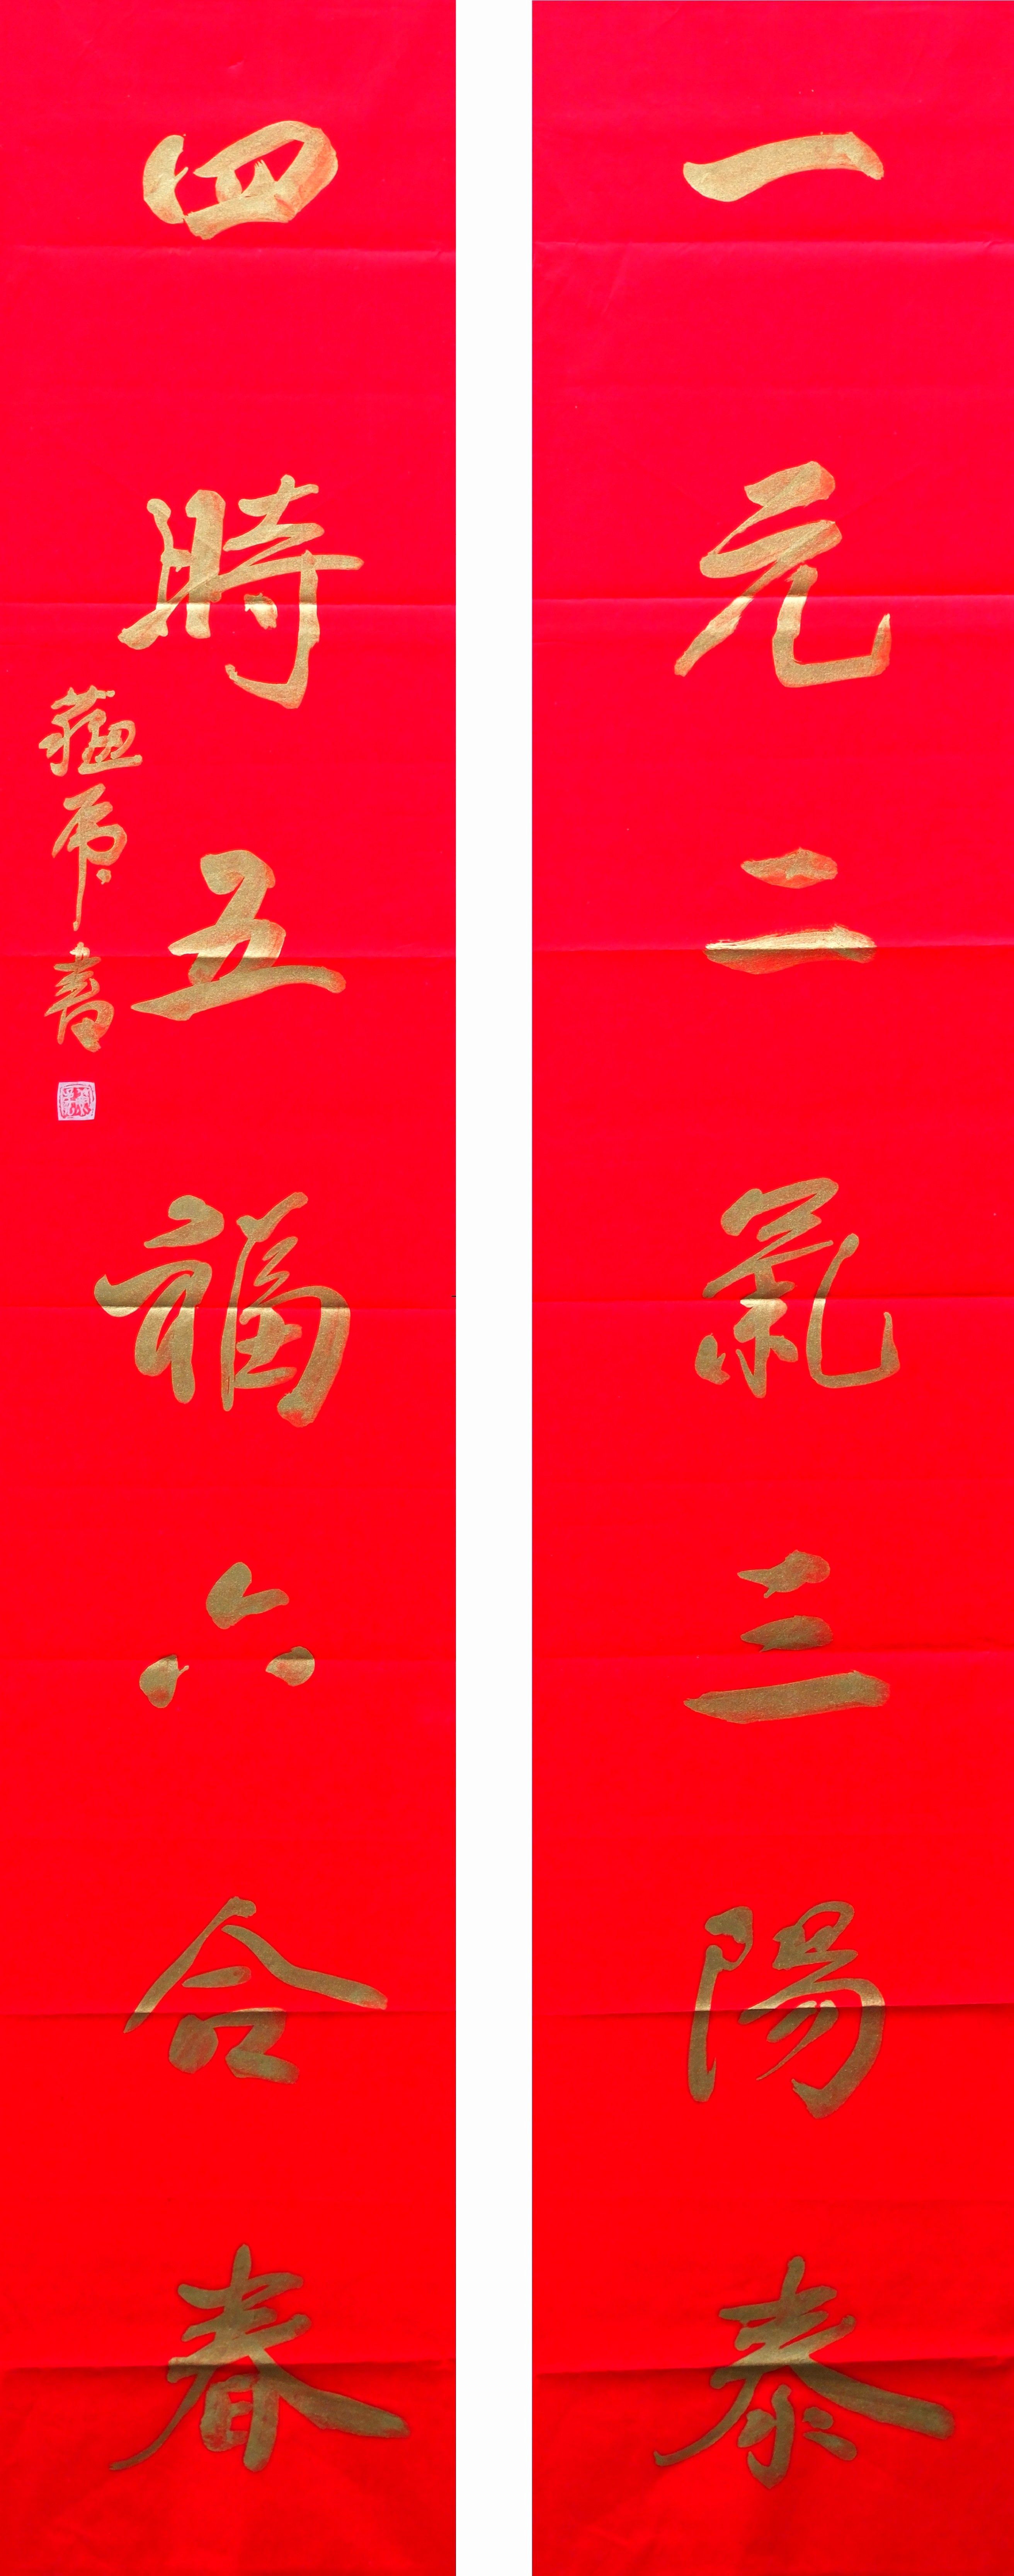 一元二氣三陽泰
四時五福六合春